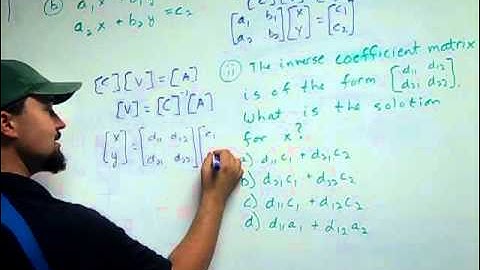 (b) a₁x + b₁y
a₂x + b₂y = c₂
[a₁ b₁ a₂ b₂] [x y] = [c₁ c₂]
[C][V] = [A]
[V] = [C]⁻¹[A]
[x y] = [d₁₁ d₁₂ d₂₁ d₂₂] [c₁
(ii) The inverse coefficient matrix
is of the form [d₁₁ d₁₂ d₂₁ d₂₂].
what is the solution
for x?
a) d₁₁c₁ + d₂₁c₂
b) d₂₁c₁ + d₂₂c₂
c) d₁₁c₁ + d₁₂c₂
d) d₁₁a₁ + d₁₂a₂